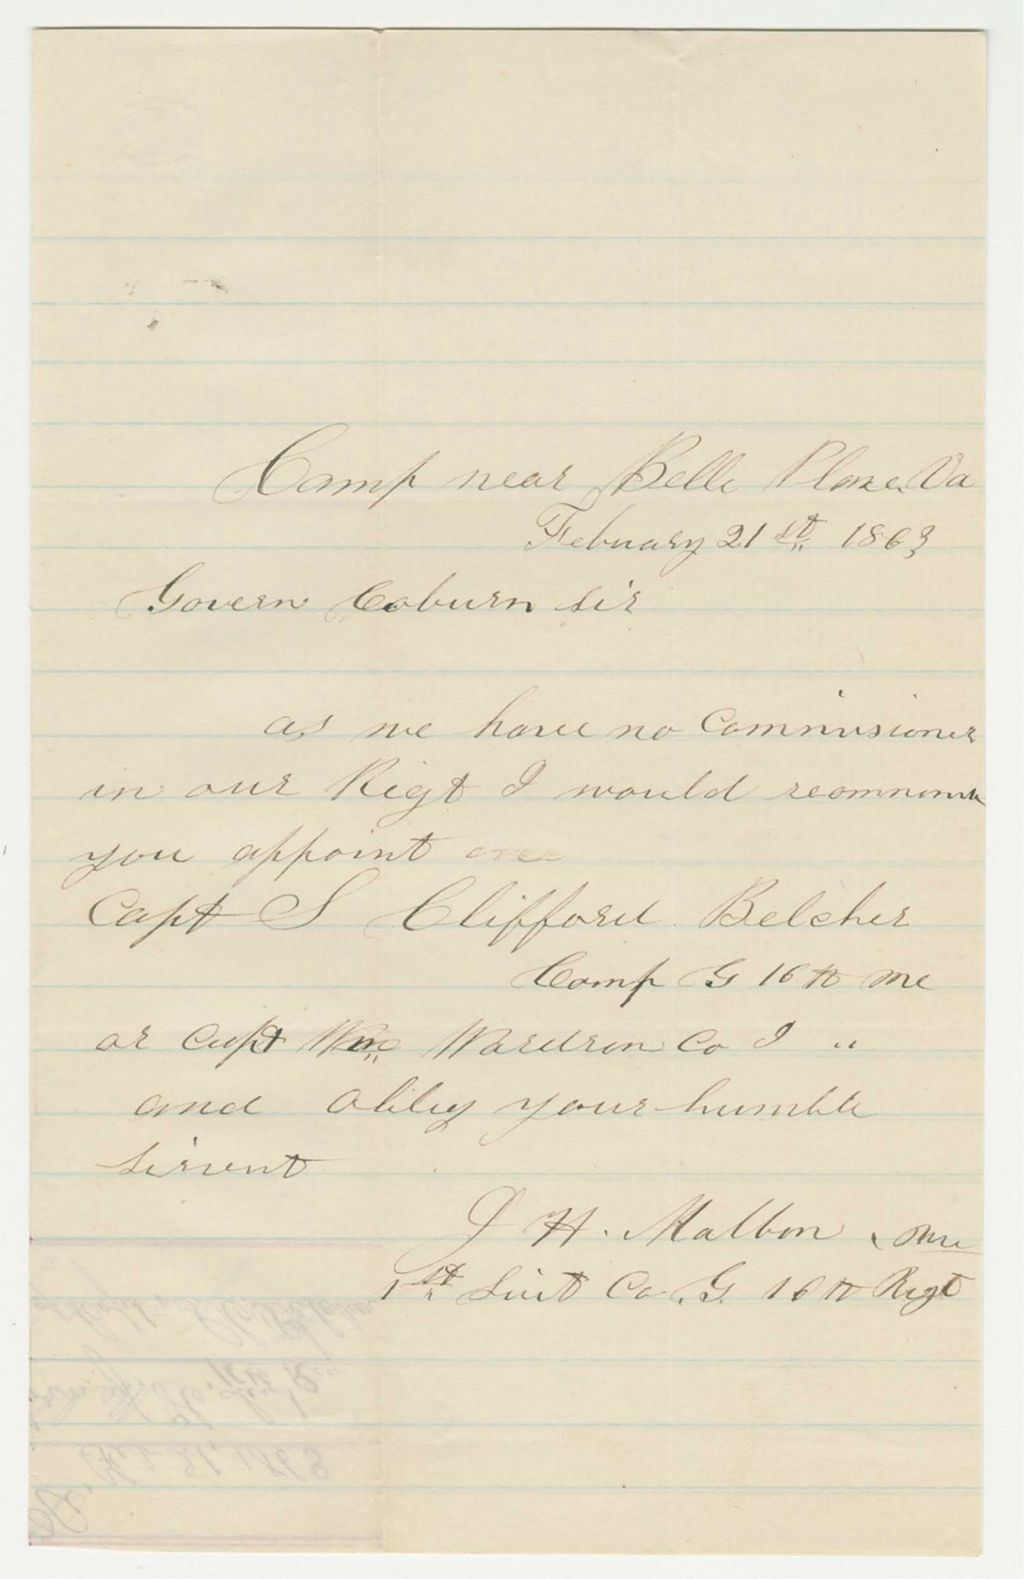 Camp near Belle Plane Va
February 21st 1863
Govern Coburn Sir
as we have no Commissioner
in our Regt I would reommend
you appoint one
Capt S Clifford Belcher
Comp G 16th Me
or Capt Wm Waredron Co I "
and obliey your humble
servent
I H. Malbon, Me
1st Liut Co. G. 16th Regt